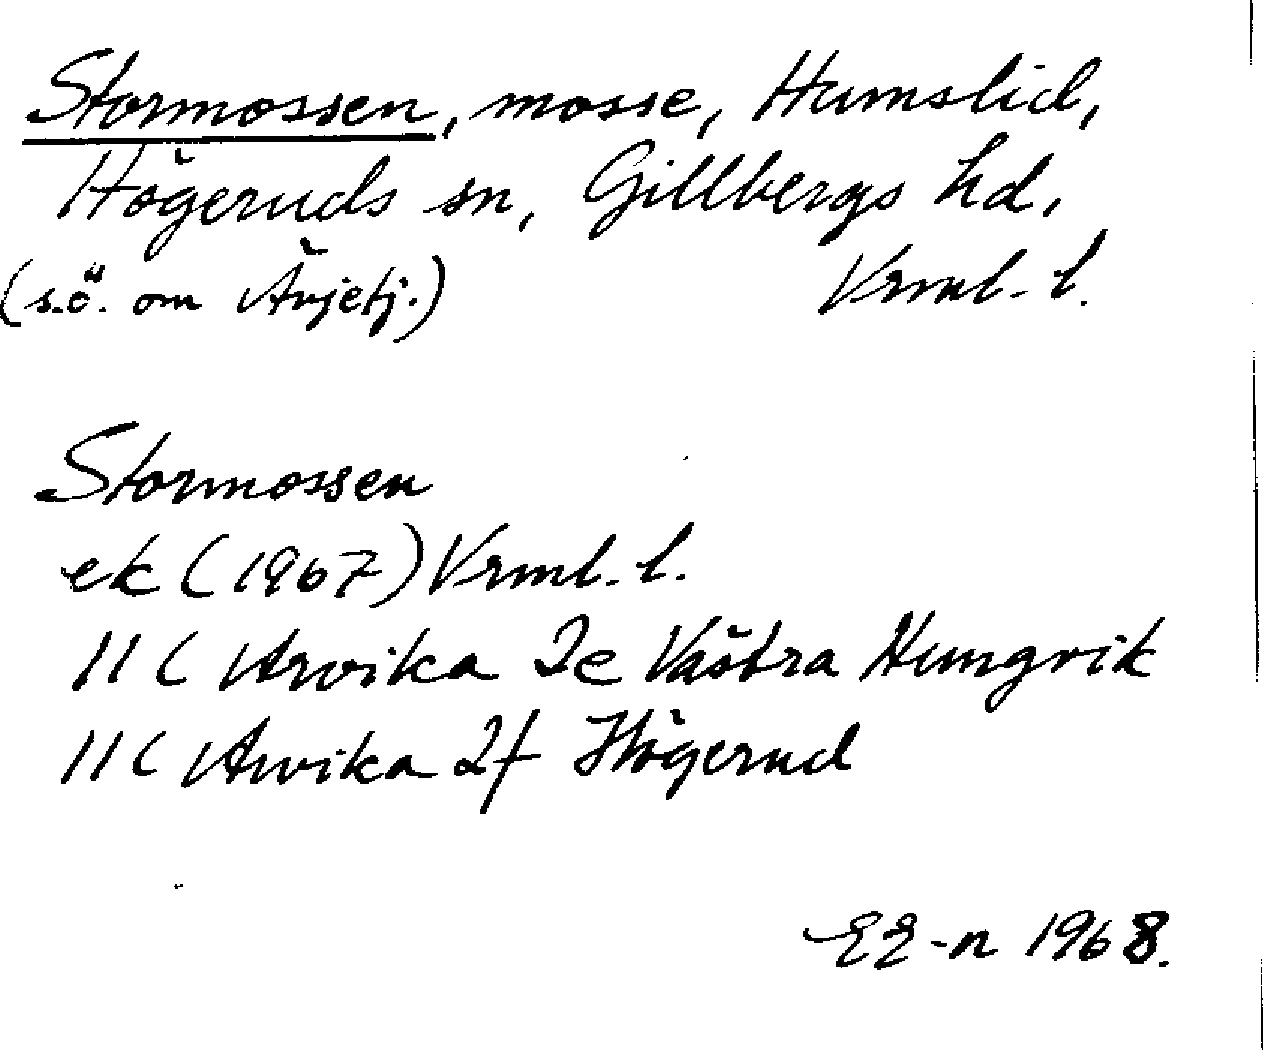 Stormossen, mosse, Humslid,
Högeruds sn, Gillbergs hd,
(s.ö. om Ävjetj.) Vrml. l.
Stormossen
ek (1967) Vrml. l.
11 C Arvika 2e Västra Hungvik
11 C Arvika 2f Högerud
EE-n 1968.